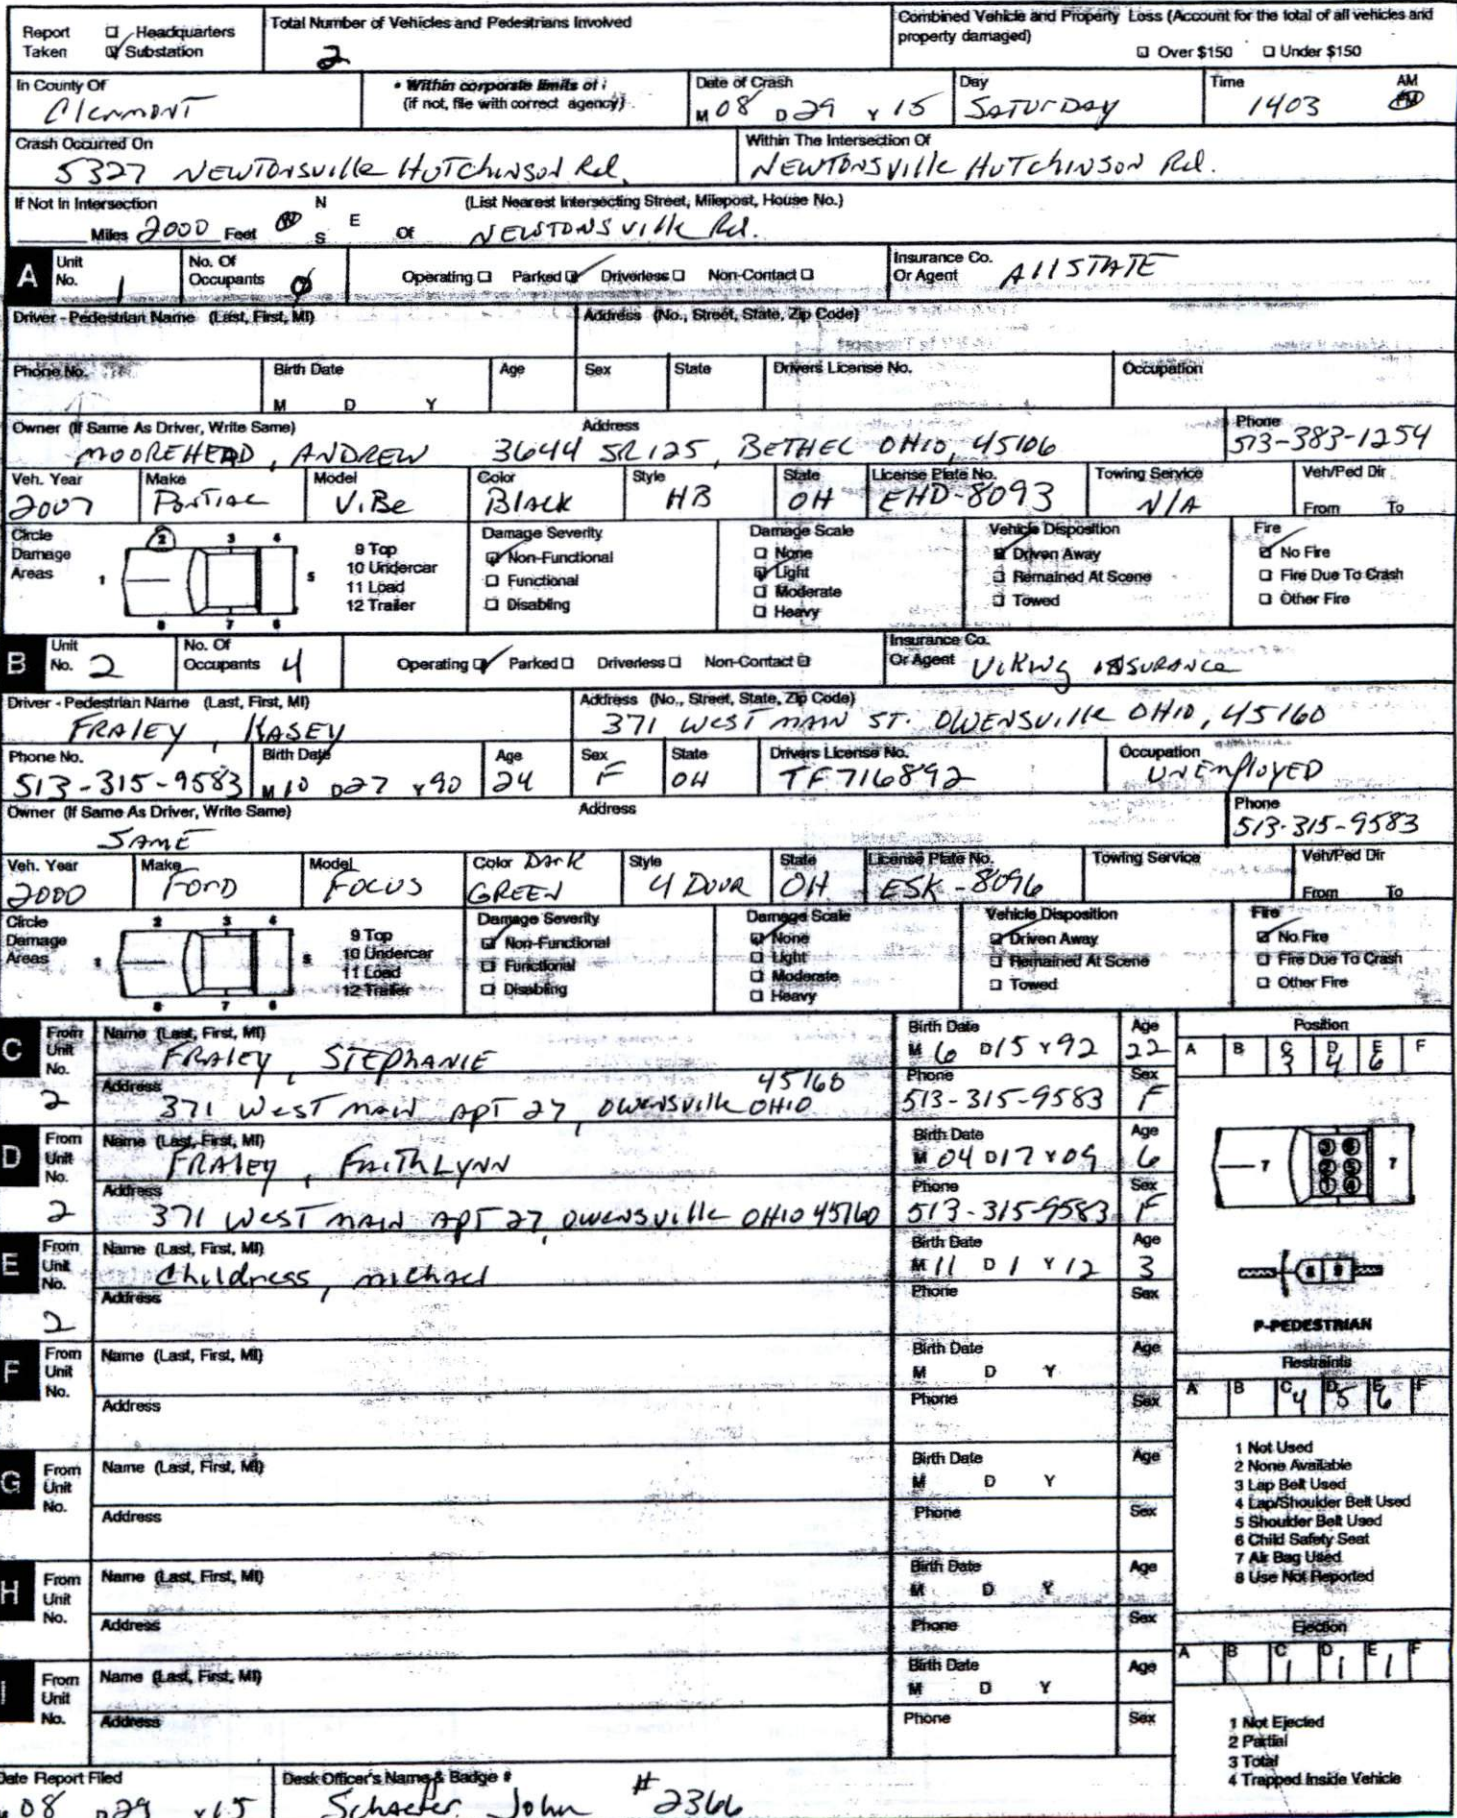 Report Taken ☐ Headquarters ☑ Substation
Total Number of Vehicles and Pedestrians Involved
2
Combined Vehicle and Property Loss (Account for the total of all vehicles and property damaged)
☐ Over $150 ☐ Under $150
In County Of
Clermont
• Within corporate limits of:
(if not, file with correct agency)
Date of Crash
M 08 D 29 Y 15
Day
SATURDAY
Time
1403
AM
PM
Crash Occurred On
5327 NEWTONSVILLE HUTCHINSON Rd.
Within The Intersection Of
NEWTONSVILLE HUTCHINSON Rd.
If Not In Intersection
Miles 2000 Feet N W S E Of
(List Nearest Intersecting Street, Milepost, House No.)
NEWTONSVILLE Rd.
A
Unit No. 1
No. Of Occupants 0
Operating ☐ Parked ☑ Driverless ☐ Non-Contact ☐
Insurance Co. Or Agent AllSTATE
Driver - Pedestrian Name (Last, First, MI)
Address (No., Street, State, Zip Code)
Phone No.
Birth Date
M D Y
Age
Sex
State
Drivers License No.
Occupation
Owner (If Same As Driver, Write Same)
Address
Phone
MOOREHEAD, ANDREW 3644 SR 125, BETHEL OHIO, 45106
513-383-1254
Veh. Year 2007
Make PONTIAC
Model ViBe
Color BLACK
Style HB
State OH
License Plate No. EHD-8093
Towing Service N/A
Veh/Ped Dir
From To
Circle Damage Areas
1 2 3 4 5 6 7 8
9 Top
10 Undercar
11 Load
12 Trailer
Damage Severity
☑ Non-Functional
☐ Functional
☐ Disabling
Damage Scale
☐ None
☑ Light
☐ Moderate
☐ Heavy
Vehicle Disposition
☑ Driven Away
☐ Remained At Scene
☐ Towed
Fire
☑ No Fire
☐ Fire Due To Crash
☐ Other Fire
B
Unit No. 2
No. Of Occupants 4
Operating ☑ Parked ☐ Driverless ☐ Non-Contact ☐
Insurance Co. Or Agent VIKING INSURANCE
Driver - Pedestrian Name (Last, First, MI)
FRALEY, KASEY
Address (No., Street, State, Zip Code)
371 WEST MAIN ST. OWENSVILLE OHIO, 45160
Phone No. 513-315-9583
Birth Date M 10 D 27 Y 90
Age 24
Sex F
State OH
Drivers License No. TF716892
Occupation UNEMPLOYED
Owner (If Same As Driver, Write Same)
SAME
Address
Phone 513-315-9583
Veh. Year 2000
Make FORD
Model FOCUS
Color DARK GREEN
Style 4 DOOR
State OH
License Plate No. ESK-8096
Towing Service
Veh/Ped Dir
From To
Circle Damage Areas
1 2 3 4 5 6 7 8
9 Top
10 Undercar
11 Load
12 Trailer
Damage Severity
☑ Non-Functional
☐ Functional
☐ Disabling
Damage Scale
☑ None
☐ Light
☐ Moderate
☐ Heavy
Vehicle Disposition
☑ Driven Away
☐ Remained At Scene
☐ Towed
Fire
☑ No Fire
☐ Fire Due To Crash
☐ Other Fire
C
From Unit No. 2
Name (Last, First, MI)
FRALEY, STEPHANIE
Birth Date M 6 D 15 Y 92
Age 22
Address
371 WEST MAIN APT 27, OWENSVILLE OHIO 45160
Phone 513-315-9583
Sex F
D
From Unit No. 2
Name (Last, First, MI)
FRALEY, FAITHLYNN
Birth Date M 04 D 17 Y 09
Age 6
Address
371 WEST MAIN APT 27, OWENSVILLE OHIO 45160
Phone 513-315-9583
Sex F
E
From Unit No. 2
Name (Last, First, MI)
Childress, michael
Birth Date M 11 D 1 Y 12
Age 3
Address
Phone
Sex
F
From Unit No.
Name (Last, First, MI)
Birth Date
M D Y
Age
Address
Phone
Sex
G
From Unit No.
Name (Last, First, MI)
Birth Date
M D Y
Age
Address
Phone
Sex
H
From Unit No.
Name (Last, First, MI)
Birth Date
M D Y
Age
Address
Phone
Sex
I
From Unit No.
Name (Last, First, MI)
Birth Date
M D Y
Age
Address
Phone
Sex
Position
A B C 3 D 4 E 6 F
7 3 6 2 5 1 4 7
8 9
P-PEDESTRIAN
Restraints
A B C 4 D 5 E 6 F
1 Not Used
2 None Available
3 Lap Belt Used
4 Lap/Shoulder Belt Used
5 Shoulder Belt Used
6 Child Safety Seat
7 Air Bag Used
8 Use Not Reported
Ejection
A B C 1 D 1 E 1 F
1 Not Ejected
2 Partial
3 Total
4 Trapped Inside Vehicle
Date Report Filed
08 D 29 Y 15
Desk Officer's Name & Badge #
Schaefer, John #2366